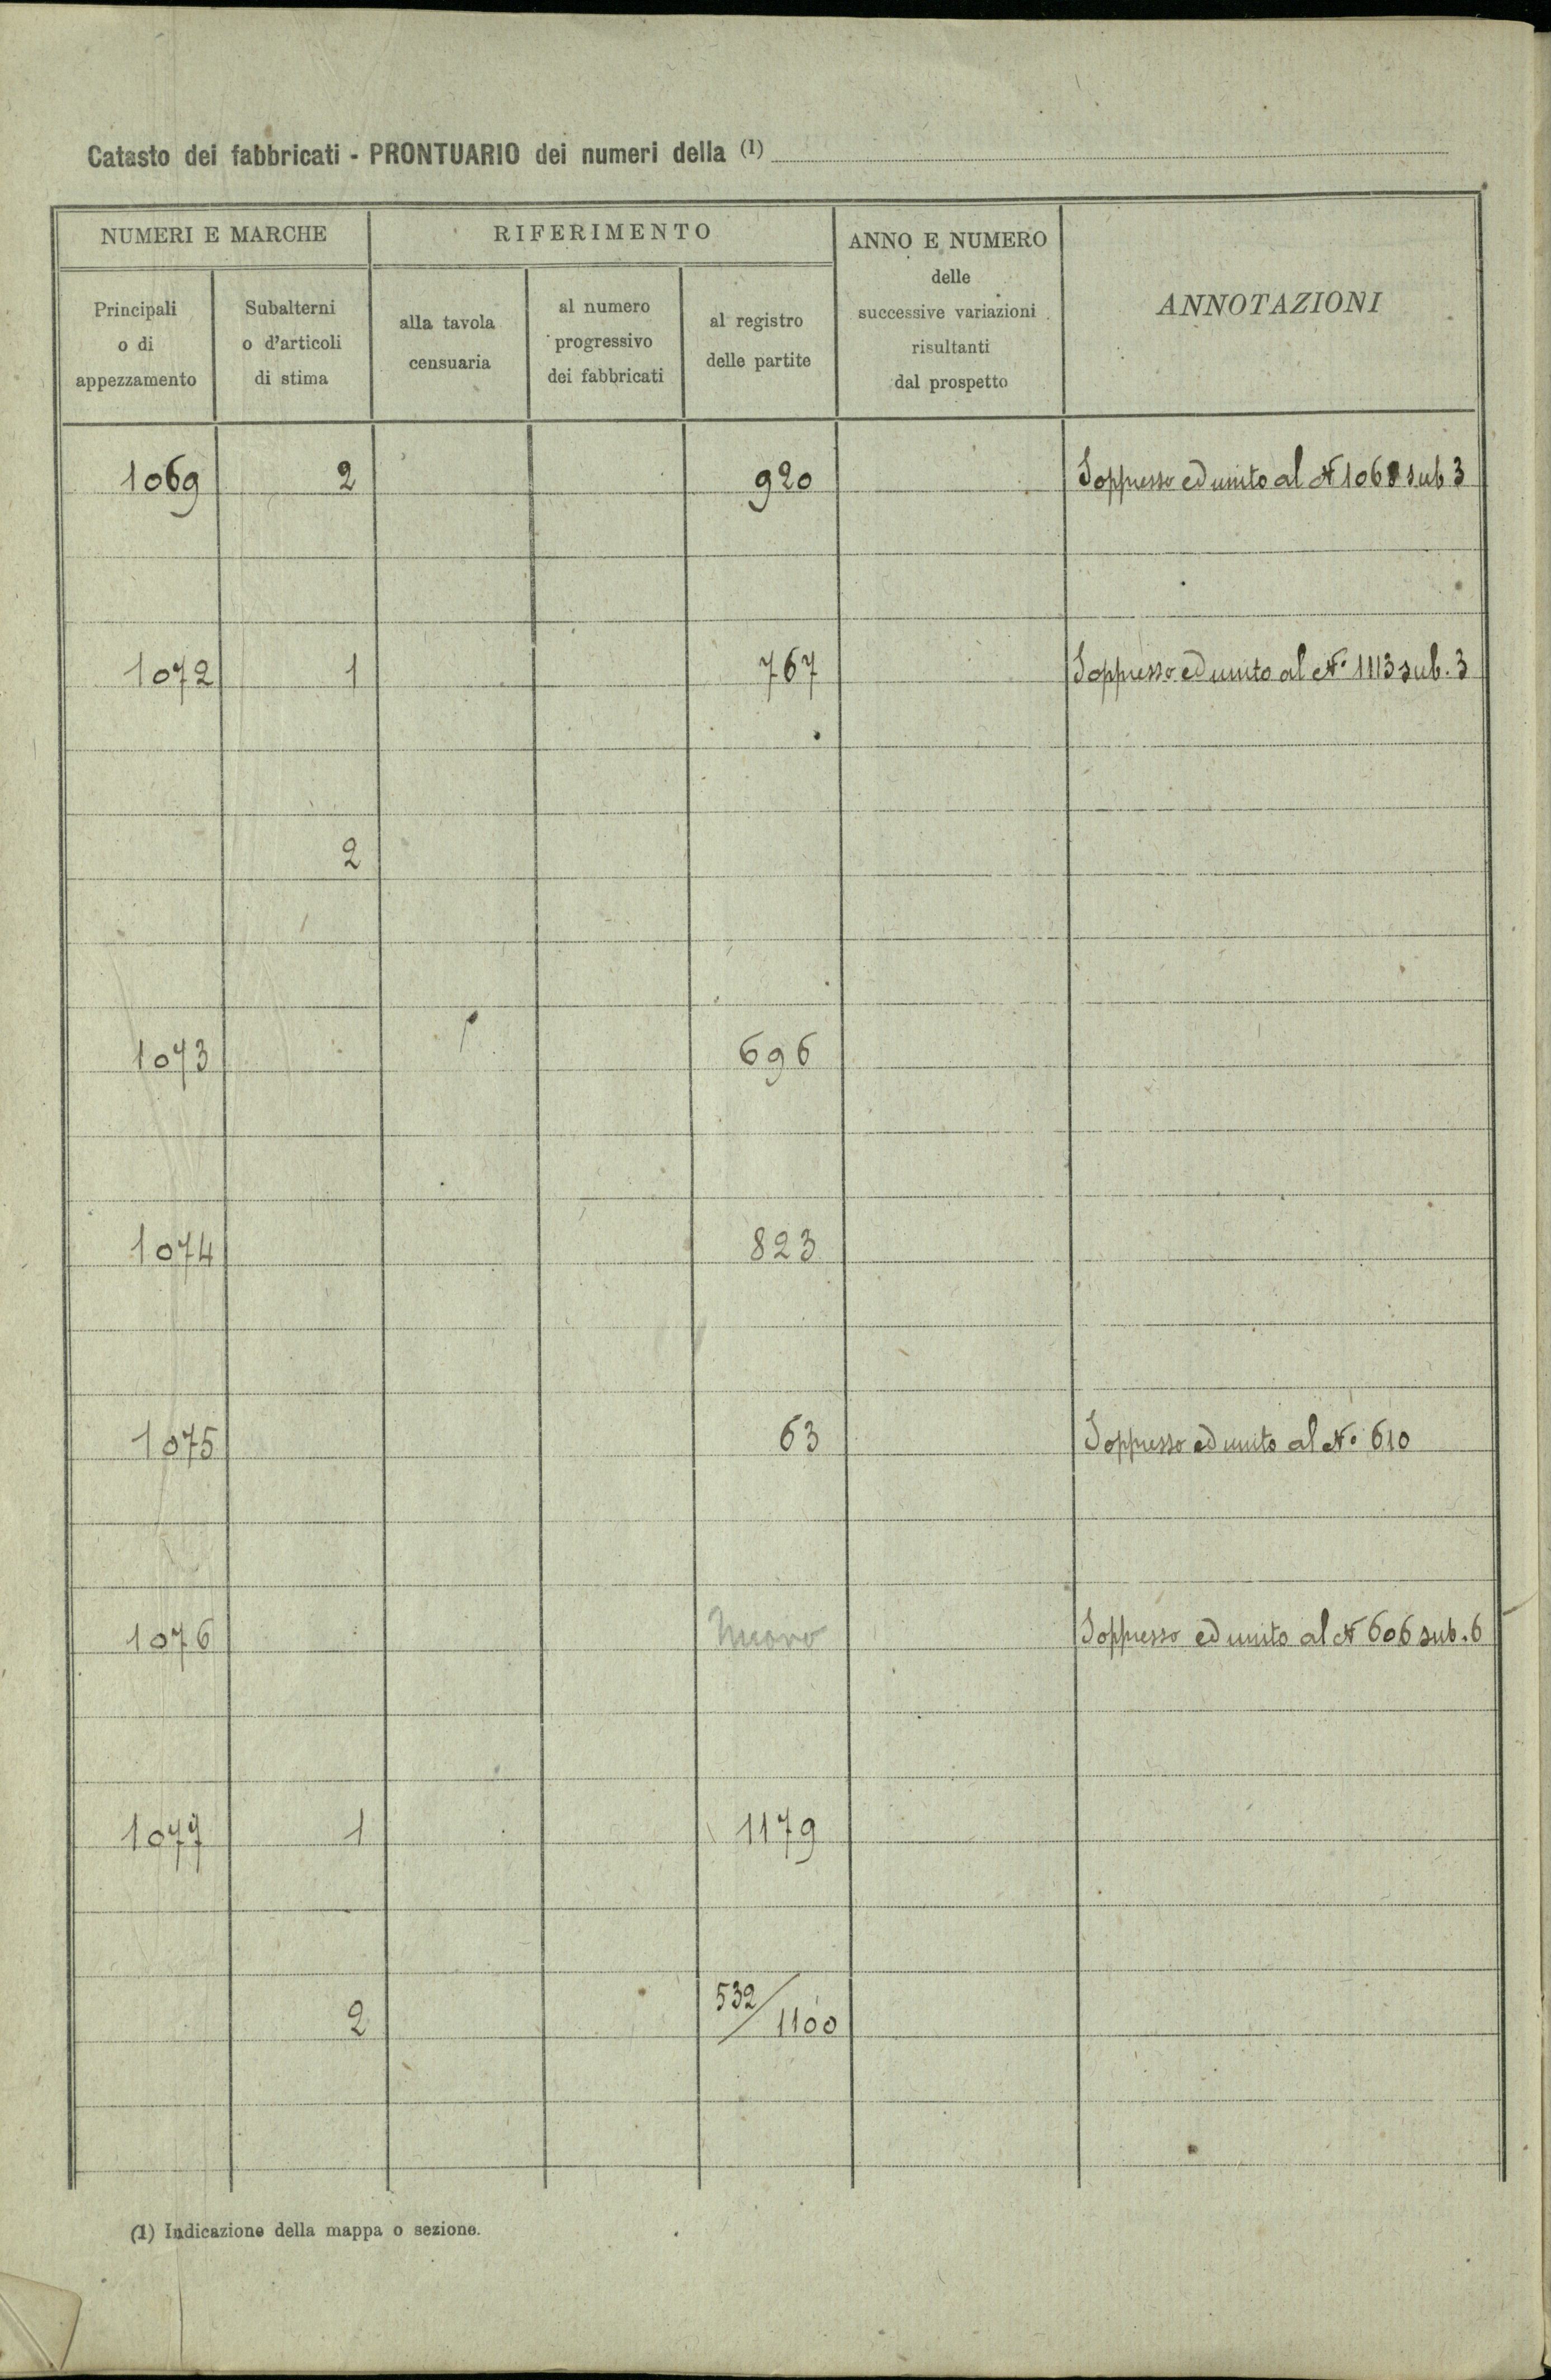 Catasto dei fabbricati - PRONTUARIO dei numeri della (1)
NUMERI E MARCHE
RIFERIMENTO
ANNO E NUMERO
delle
successive variazioni
risultanti
dal prospetto
ANNOTAZIONI
Principali
o di
appezzamento
Subalterni
o d'articoli
di stima
alla tavola
censuaria
al numero
progressivo
dei fabbricati
al registro
delle partite
1069 2 920 Soppresso ed unito al N 1068 sub 3
1072 1 767 Soppresso ed unito al N° 1113 sub. 3
2
1073 696
1074 823
1075 63 Soppresso ed unito al N° 610
1076 Nuovo Soppresso ed unito al N 606 sub. 6
1077 1 1179
2 532/1100
(1) Indicazione della mappa o sezione.